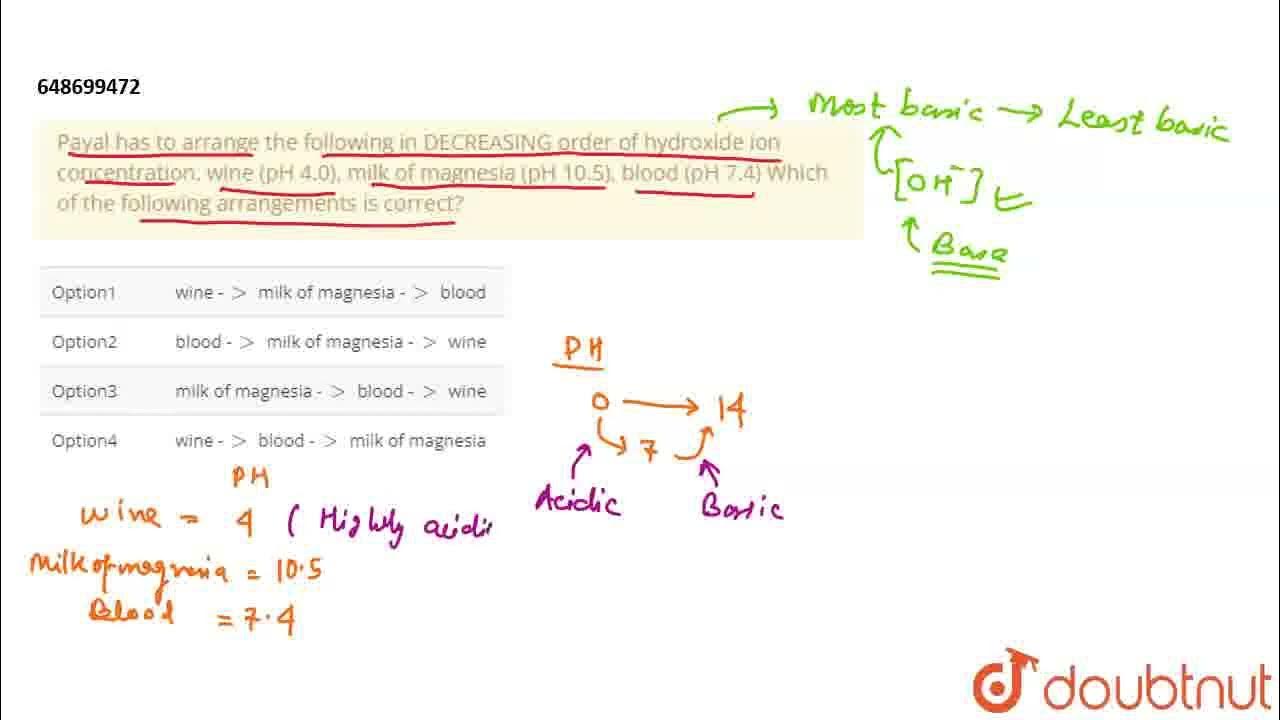 648699472
Payal has to arrange the following in DECREASING order of hydroxide ion
concentration. wine (pH 4.0), milk of magnesia (pH 10.5), blood (pH 7.4) Which
of the following arrangements is correct?
Most basic → Least basic
[OH⁻]
Base
Option1 wine - > milk of magnesia - > blood
Option2 blood - > milk of magnesia - > wine
Option3 milk of magnesia - > blood - > wine
Option4 wine - > blood - > milk of magnesia
PH
0 → 14
7
Acidic Basic
PH
wine = 4 ( Highly acidic
Milk of magnesia = 10.5
Blood = 7.4
doubtnut